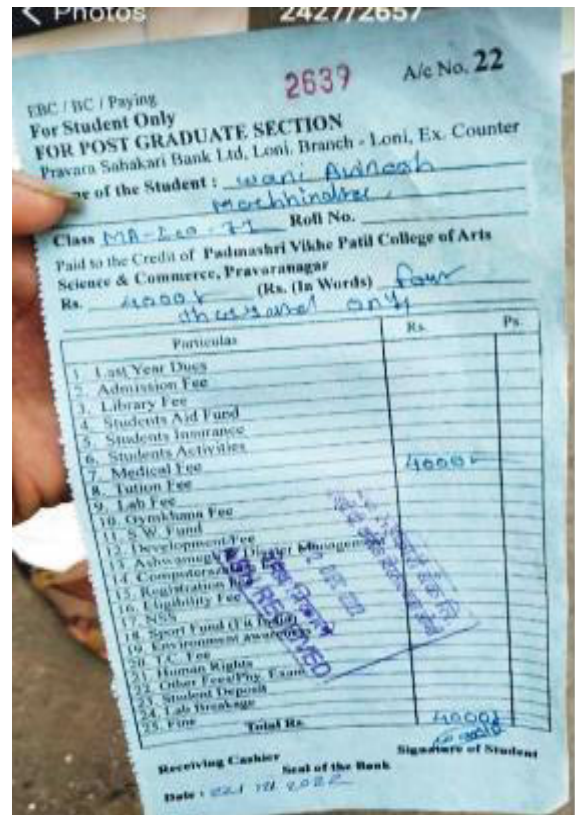 Photos 2427/2657
2639 A/c No. 22
EBC / BC / Paying
For Student Only
FOR POST GRADUATE SECTION
Pravara Sahakari Bank Ltd, Loni. Branch - Loni, Ex. Counter
of the Student : wani Avinash
Machhindra
Class MA-Eco-II Roll No.
Paid to the Credit of Padmashri Vikhe Patil College of Arts
Science & Commerce, Pravaranagar
Rs. 4000/- (Rs. (In Words) four
thousand only
Particulas Rs. Ps.
1. Last Year Dues
2. Admission Fee
3. Library Fee
4. Students Aid Fund
5. Students Insurance
6. Students Activities
7. Medical Fee
8. Tution Fee 4000/-
9. Lab Fee
10. Gymkhana Fee
11. S.W. Fund
12. Development Fee
13. Ashwamegh Disaster Management
14.
15. Registration
16. Eligibility Fee
17. NSS
18. Sport Fund
19. Environment awareness
20. T.C. Fee
21. Human Rights
22. Other Fees/Phy. Exam
23. Student Deposit
24. Lab Breakage
25. Fine
Total Rs. 4000/-
CASH RECEIVED
Receiving Cashier Signature of Student
Seal of the Bank
Date : 2022